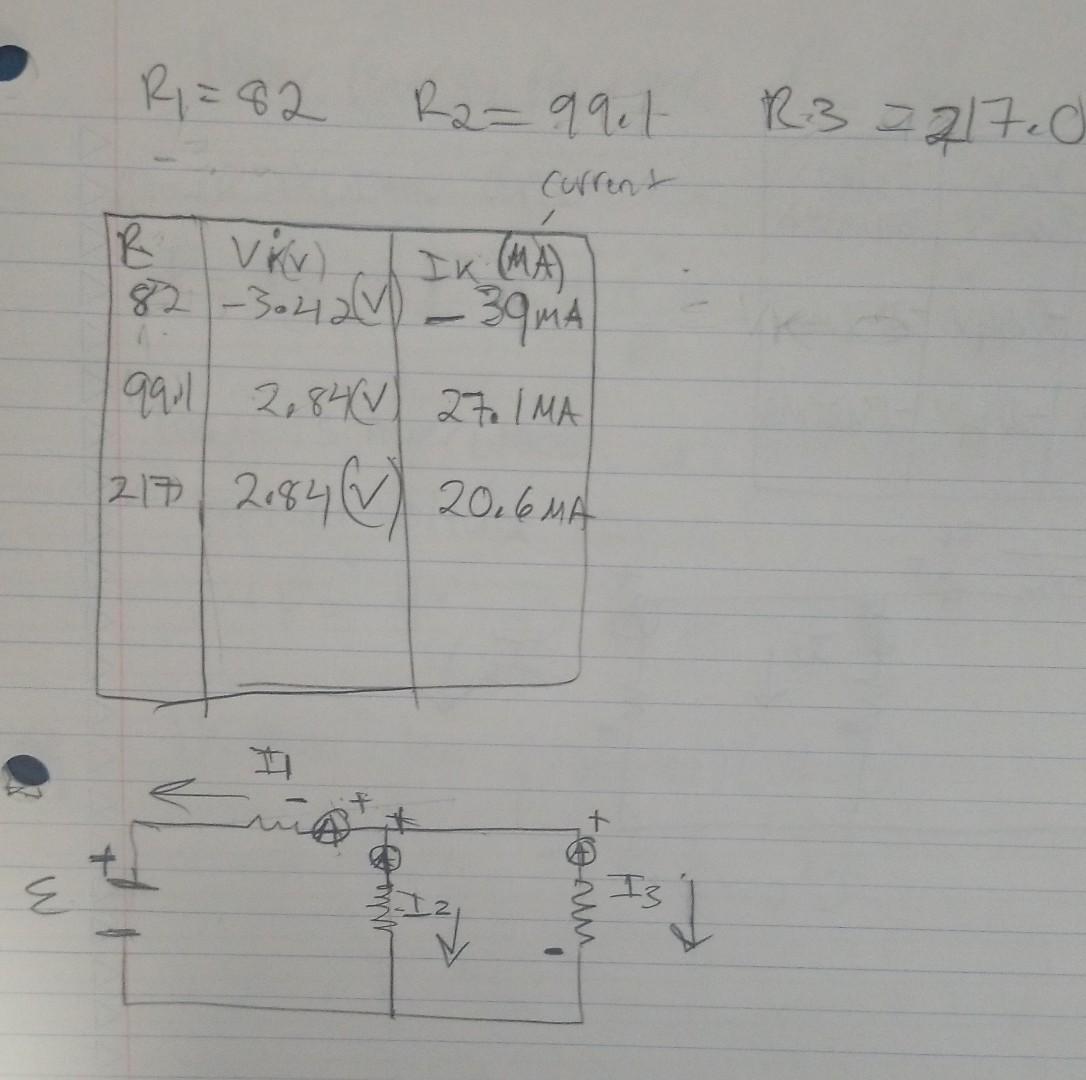 R1 = 82 R2 = 99.1 R.3 = 217.0
current
R VK(V) IK (MA)
82 -3.42(V) - 39mA
99.1 2.84(V) 27.1MA
217 2.84(V) 20.6MA
I1
- +
A + +
+ A A
ε I2 I3
- -